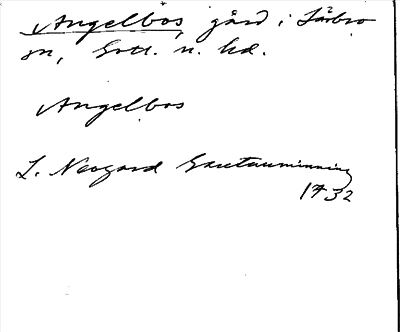 Angelbos, gård i Lärbro
sn, Gotl. n. hd.
Angelbos
L. Neogard Gautauminning
1732